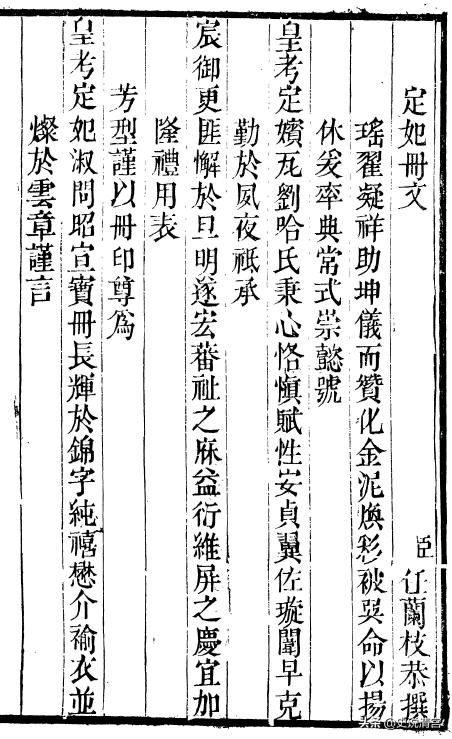 定妃冊文 臣任蘭枝恭撰
瑤翟凝祥助坤儀而贊化金泥煥彩被巽命以揚
休爰率典常式崇懿號
皇考定嬪瓦劉哈氏秉心恪愼賦性安貞翼佐璇闈早克
勤於夙夜祗承
宸御更匪懈於旦明遂宏蕃祉之庥益衍維屏之慶宜加
隆禮用表
芳型謹以冊印尊爲
皇考定妃淑問昭宣寶冊長輝於錦字純禧懋介褕衣並
燦於雲章謹言
头条 @史说清客